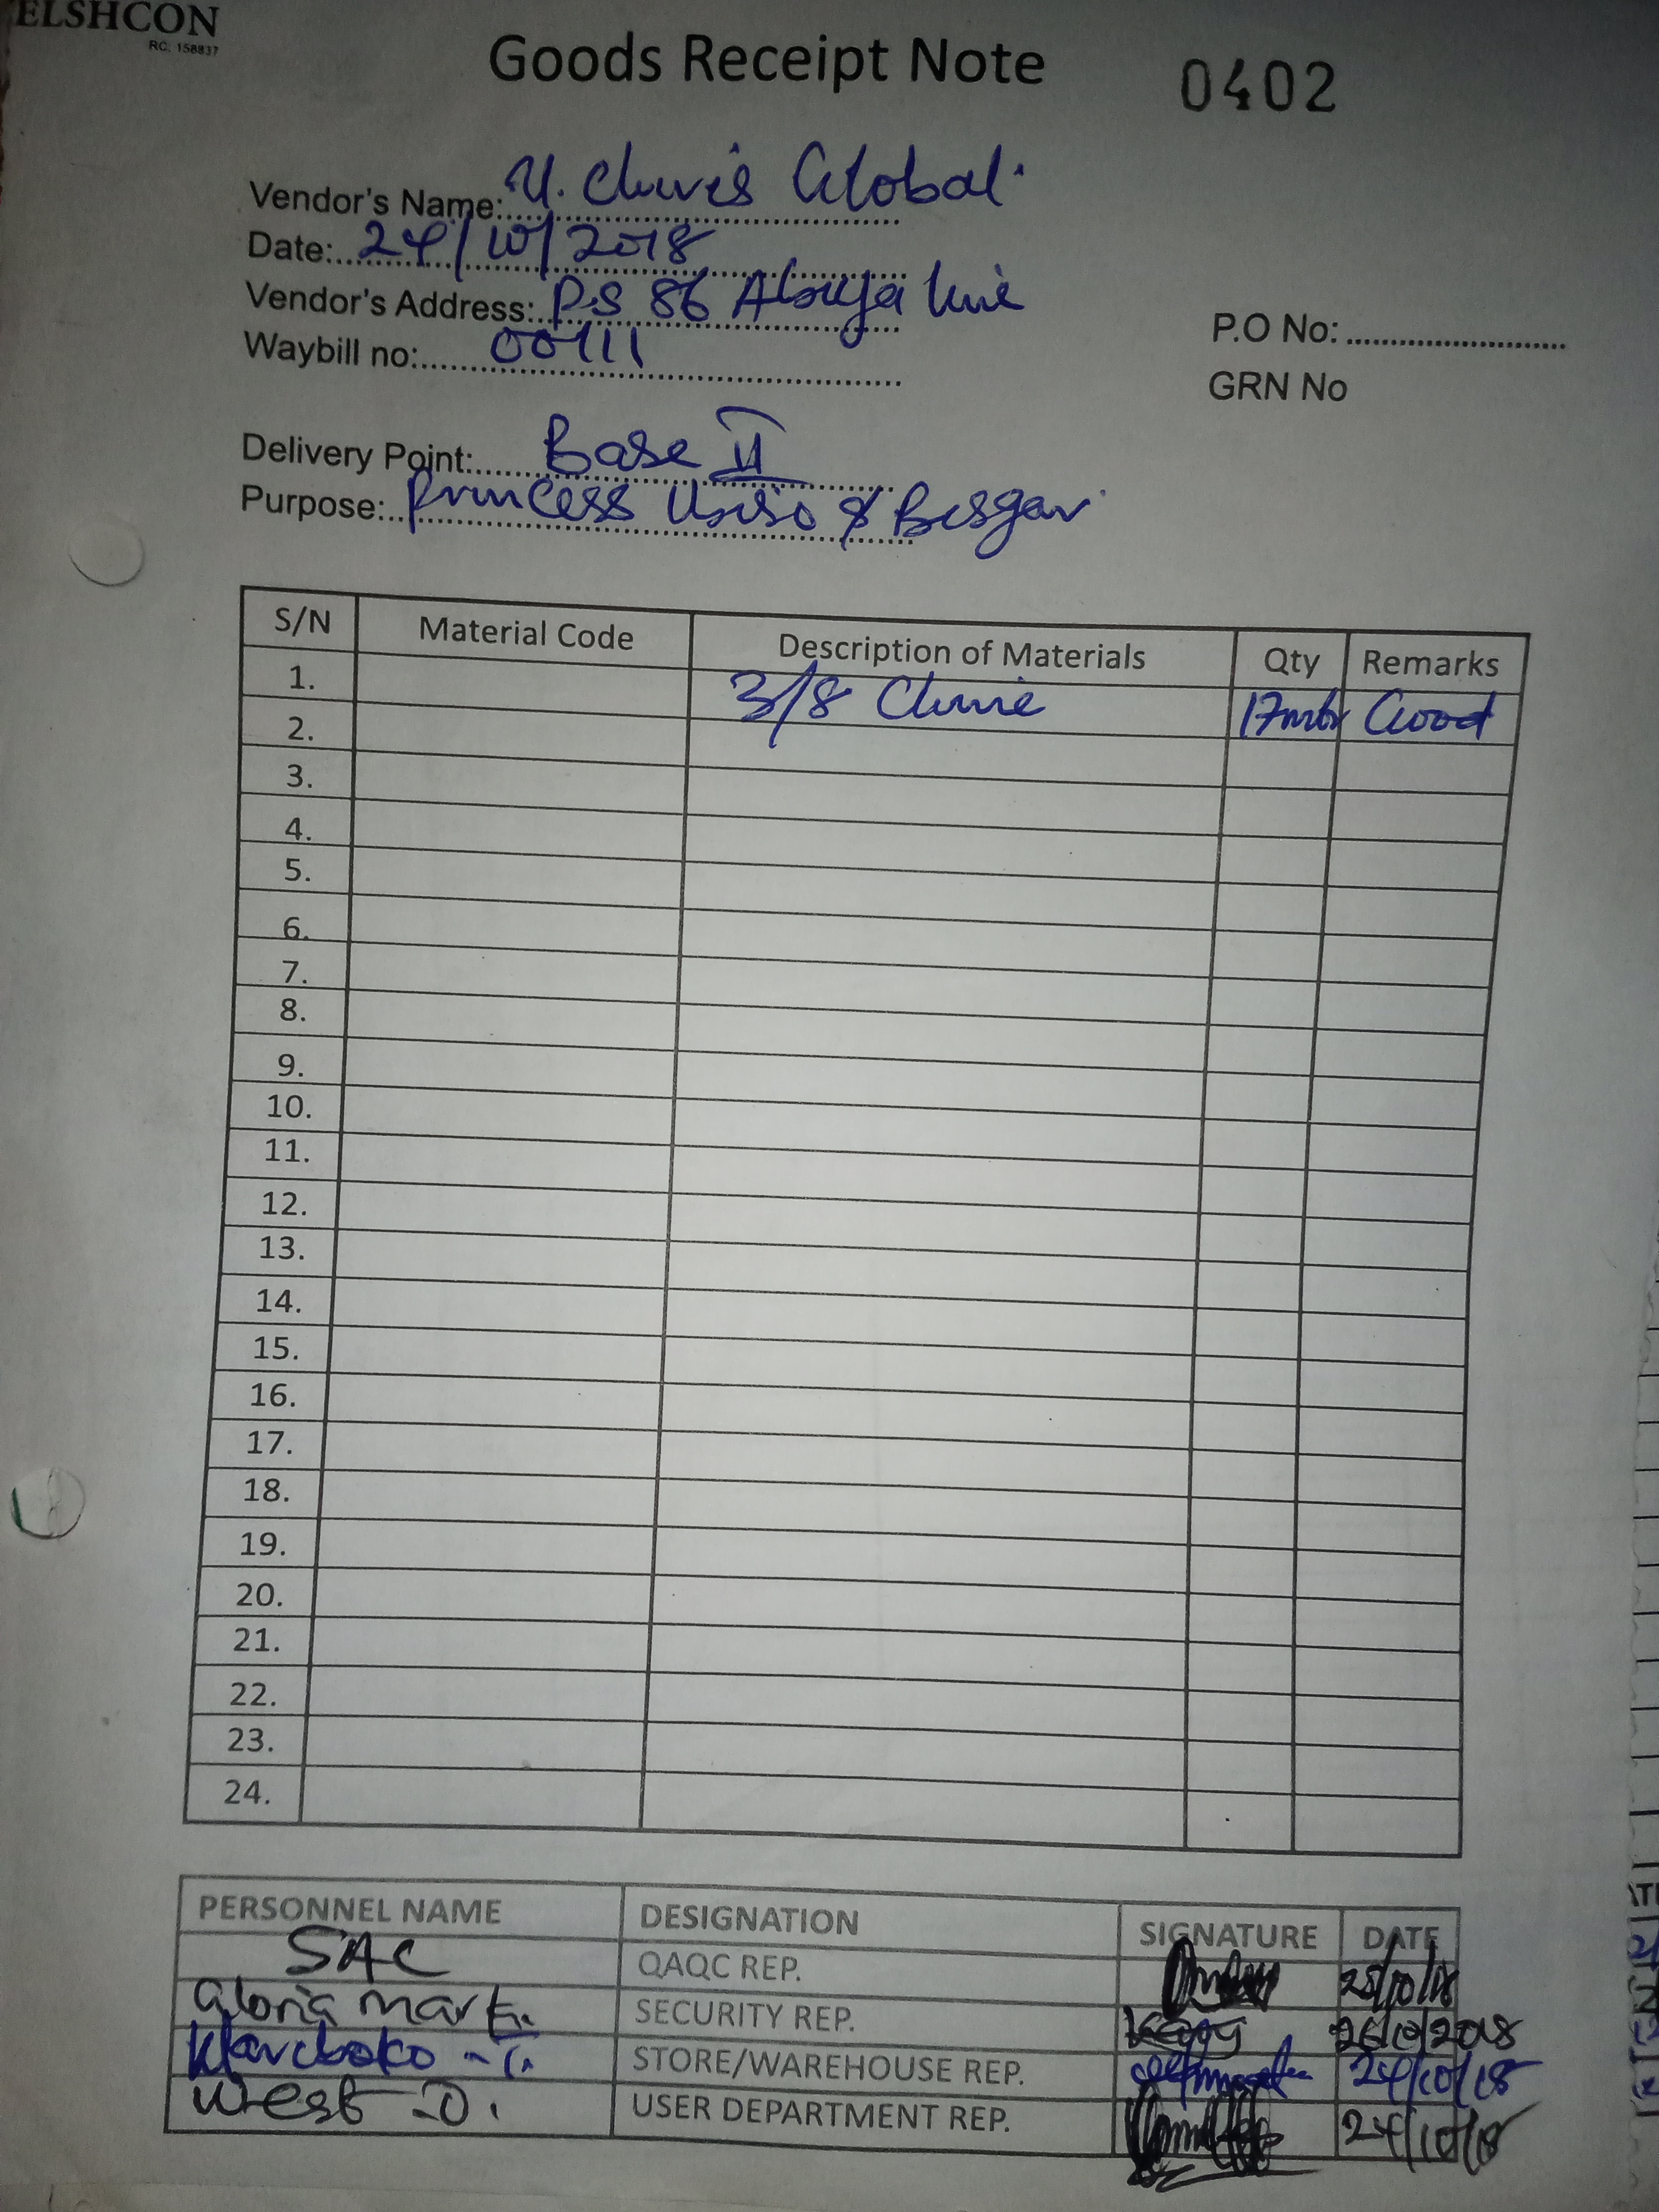 ELSHCON
RC: 158837
Goods Receipt Note 0402
Vendor's Name: U. Chris Global
Date: 24/10/2018
Vendor's Address: P.S 86 Abuja line
Waybill no: 00111
P.O No:
GRN No
Delivery Point: Base II
Purpose: Princess &
S/N Material Code Description of Materials Qty Remarks
1. 3/8 17mtr Good
2.
3.
4.
5.
6.
7.
8.
9.
10.
11.
12.
13.
14.
15.
16.
17.
18.
19.
20.
21.
22.
23.
24.
PERSONNEL NAME DESIGNATION SIGNATURE DATE
SAC QAQC REP. 25/10/18
Gloria Mark SECURITY REP. 26/10/2018
STORE/WAREHOUSE REP. 24/10/18
West D. USER DEPARTMENT REP. 24/10/18